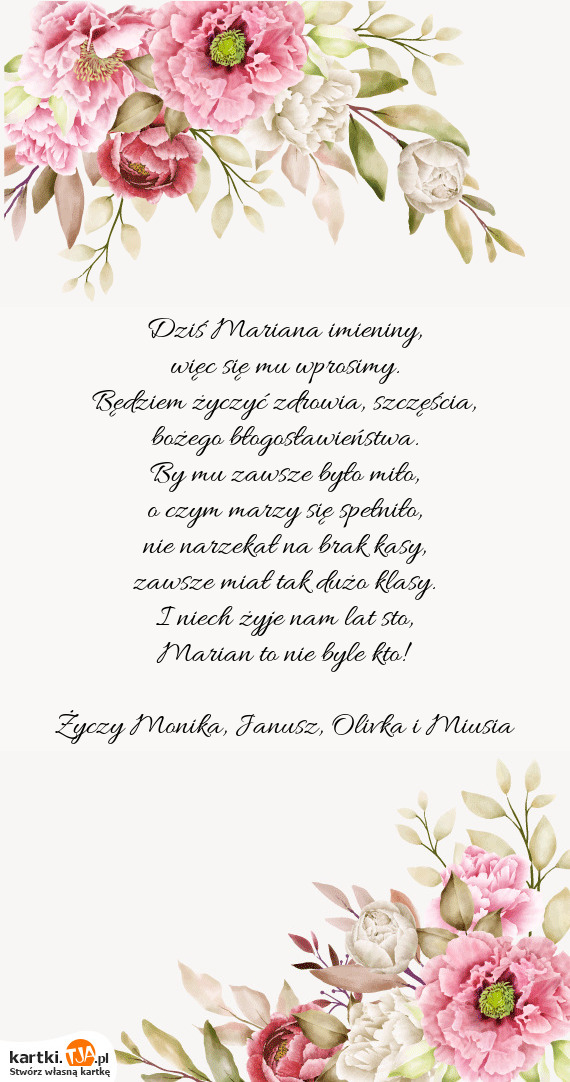 Dziś Mariana imieniny,
więc się mu wprosimy.
Będziem życzyć zdrowia, szczęścia,
bożego błogosławieństwa.
By mu zawsze było miło,
o czym marzy się spełniło,
nie narzekał na brak kasy,
zawsze miał tak dużo klasy.
I niech żyje nam lat sto,
Marian to nie byle kto!
Życzy Monika, Janusz, Olivka i Miusia
kartki.TJA.pl
Stwórz własną kartkę